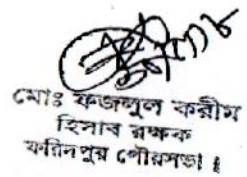 মোঃ ফজলুল করীম
হিসাব রক্ষক
ফরিদপুর পৌরসভা।